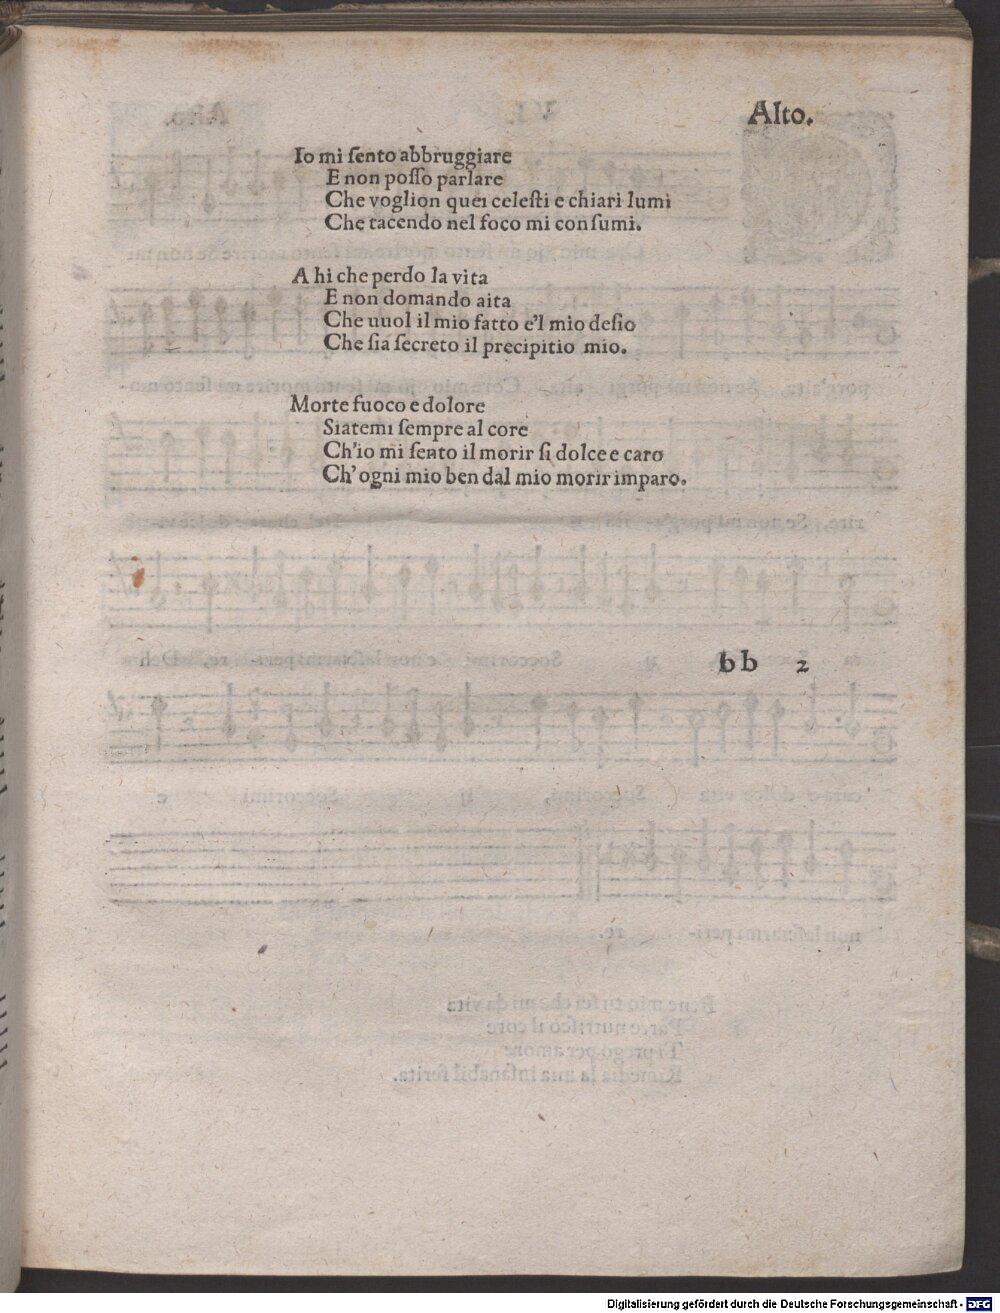 Alto.
Io mi ſento abbruggiare
E non poſſo parlare
Che voglion quei celeſti e chiari lumi
Che tacendo nel foco mi conſumi.
A hi che perdo la vita
E non domando aita
Che uuol il mio fatto e'l mio deſio
Che ſia ſecreto il precipitio mio.
Morte fuoco e dolore
Siatemi ſempre al core
Ch'io mi ſento il morir ſi dolce e caro
Ch'ogni mio ben dal mio morir imparo.
bb 2
Digitalisierung gefördert durch die Deutsche Forschungsgemeinschaft - DFG